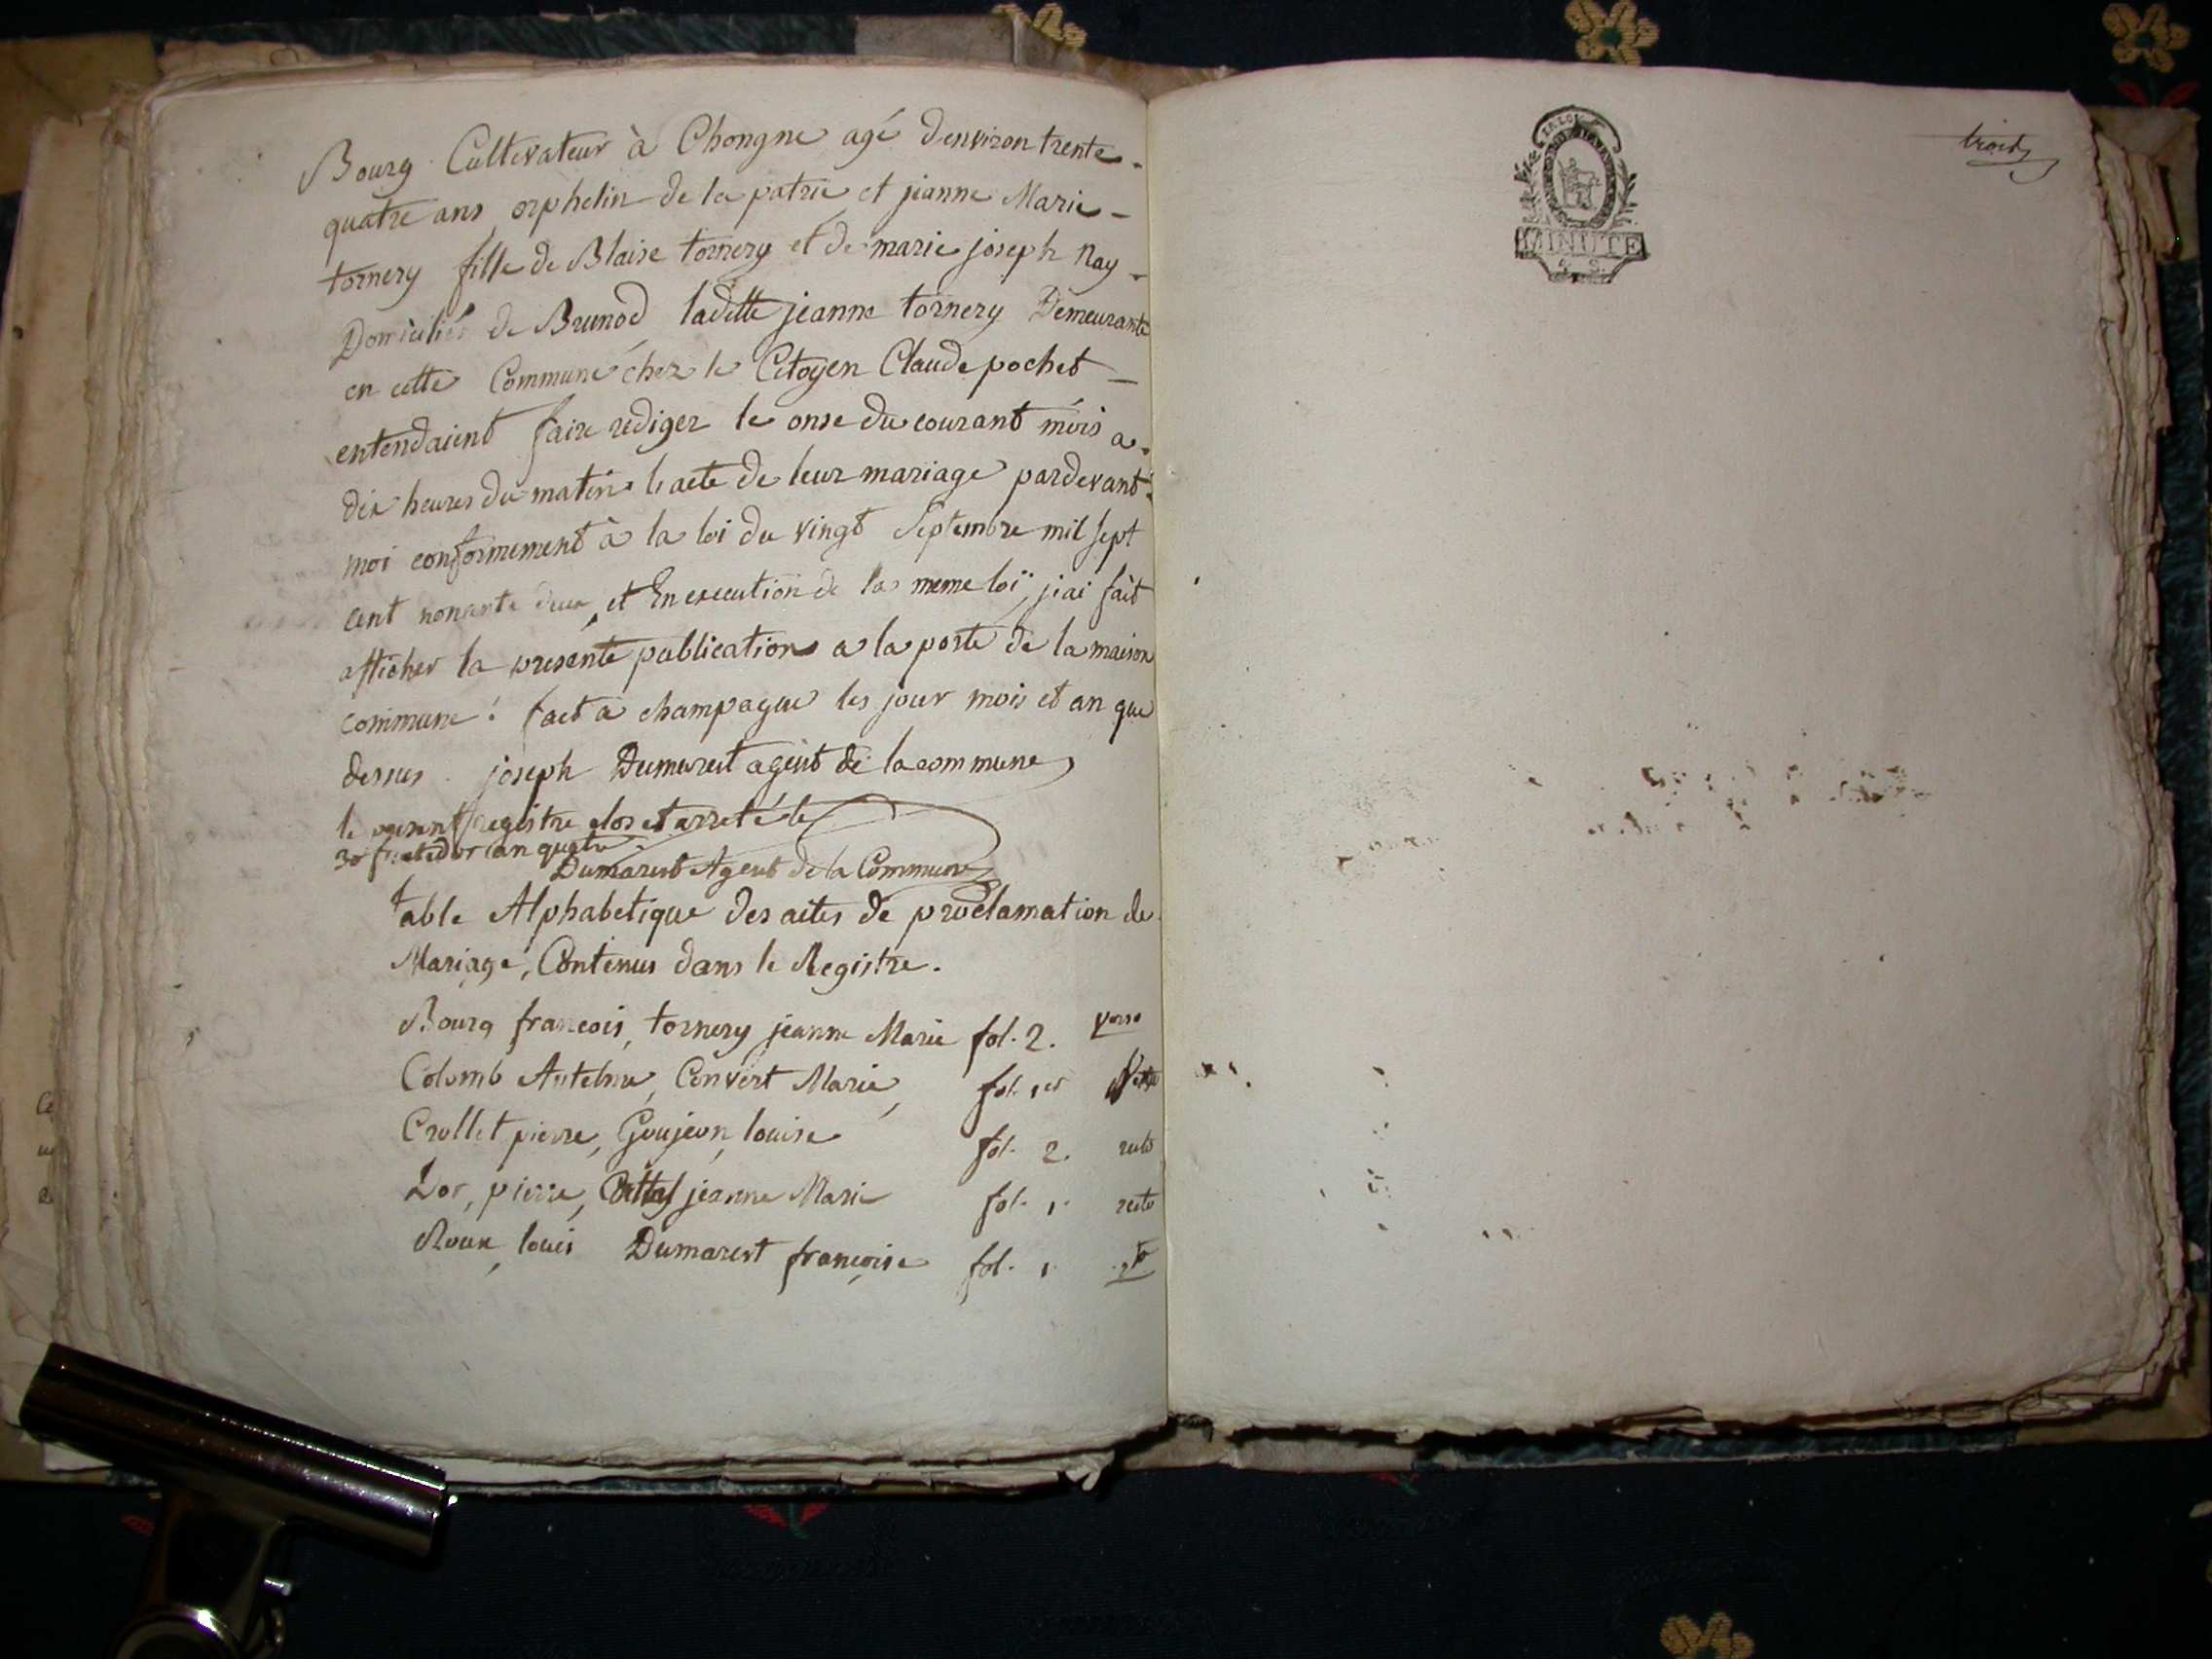 Bourg Cultivateur à Chongne agé denviron trente
quatre ans orphelin de la patrie et jeanne Marie
tornery fille de Blaise tornery et de marie joseph Ray
Domiciliés de Brunod laditte jeanne tornery Demeurante
en cette Commune chez le Citoyen Claude pochet
entendaient faire rediger le onse du courant mois a
dix heures du matin l'acte de leur mariage pardevant
moi conformement à la loi du vingt Septembre mil sept
cent nonante deux, et En execution de la meme loi, j'ai fait
afficher la presente publication a la porte de la maison
commune. fact a champagne les jour mois et an que
dessus. joseph Dumarest agent de la commune
le present registre clos et arreté le
30 fructidor an quatre
Dumarest Agent de la Commune
table Alphabetique des actes de proclamation de
Mariage, Contenus dans le Registre.
Bourg francois, tornery jeanne Marie fol. 2. verso
Colomb Antelme, Convert Marie, fol. 1er
Crollet pierre, Goujeon, louise fol. 2. recto
Dor, pierre, jeanne Marie fol. 1. recto
Roux, louis Dumarest françoise fol. 1.
LA LOI
MINUTE